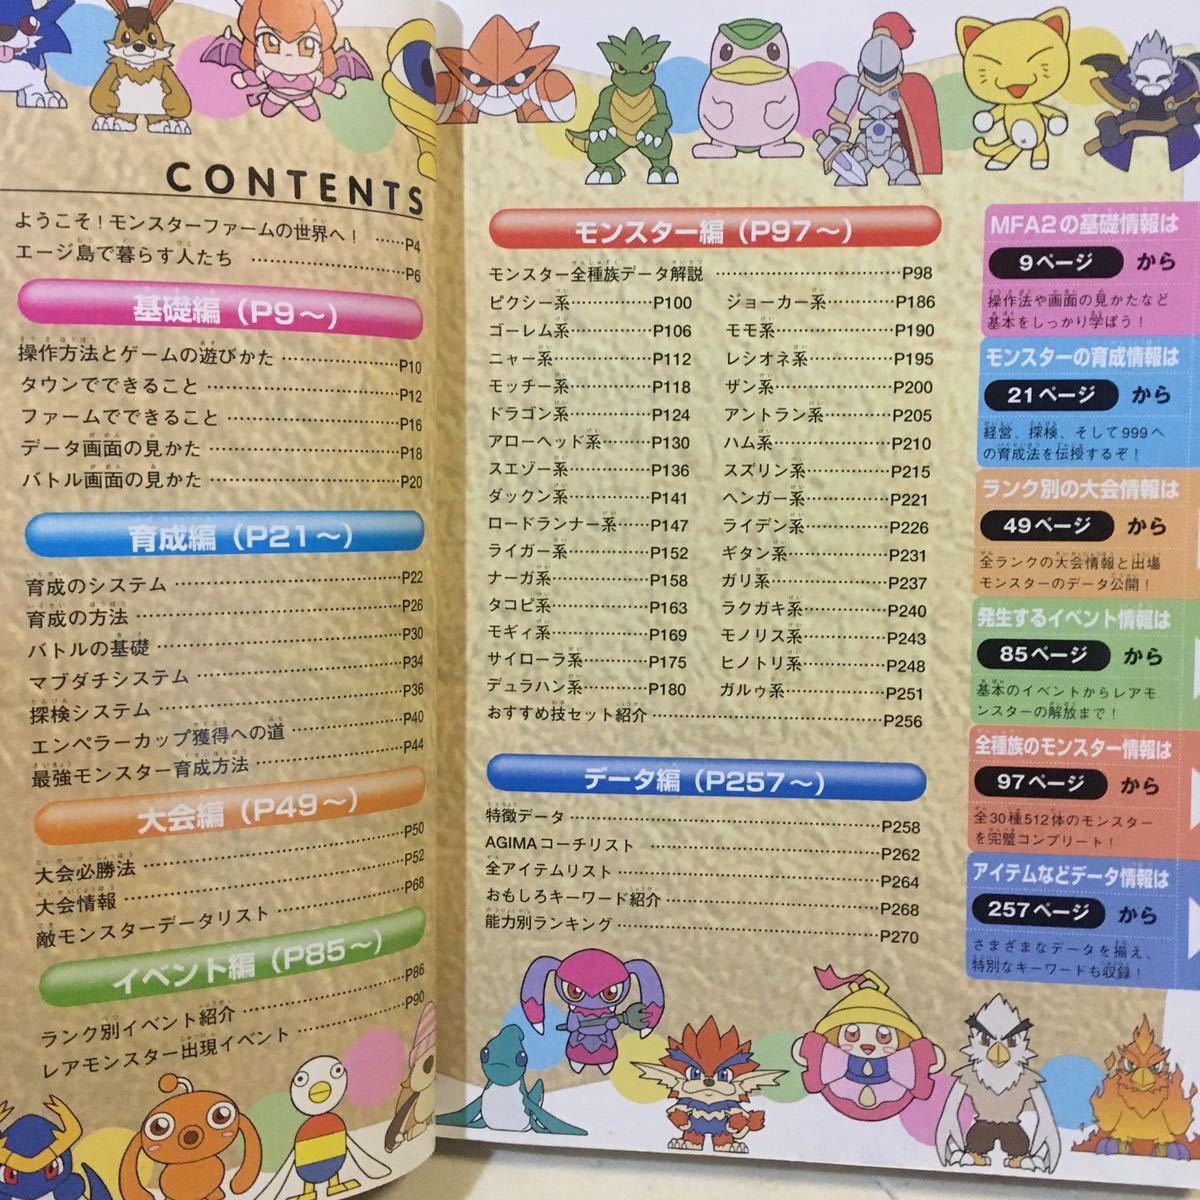 CONTENTS
ようこそ！モンスターファームの世界へ！ ……P4
エージ島で暮らす人たち ……P6
基礎編（P9～）
操作方法とゲームの遊びかた……P10
タウンでできること……P12
ファームでできること……P16
データ画面の見かた……P18
バトル画面の見かた……P20
育成編（P21～）
育成のシステム……P22
育成の方法……P26
バトルの基礎……P30
マブダチシステム……P34
探検システム……P36
エンペラーカップ獲得への道……P40
最強モンスター育成方法……P44
大会編（P49～）
大会必勝法……P50
大会情報……P52
敵モンスターデータリスト……P68
イベント編（P85～）
ランク別イベント紹介……P86
レアモンスター出現イベント……P90
モンスター編（P97～）
モンスター全種族データ解説……P98
ピクシー系……P100
ゴーレム系……P106
ニャー系……P112
モッチー系……P118
ドラゴン系……P124
アローヘッド系……P130
スエゾー系……P136
ダックン系……P141
ロードランナー系……P147
ライガー系……P152
ナーガ系……P158
タコピ系……P163
モギィ系……P169
サイローラ系……P175
デュラハン系……P180
ジョーカー系……P186
モモ系……P190
レシオネ系……P195
ザン系……P200
アントラン系……P205
ハム系……P210
スズリン系……P215
ヘンガー系……P221
ライデン系……P226
ギタン系……P231
ガリ系……P237
ラクガキ系……P240
モノリス系……P243
ヒノトリ系……P248
ガルゥ系……P251
おすすめ技セット紹介……P256
データ編（P257～）
特徴データ……P258
AGIMAコーチリスト……P262
全アイテムリスト……P264
おもしろキーワード紹介……P268
能力別ランキング……P270
MFA2の基礎情報は
9ページ から
操作法や画面の見かたなど
基本をしっかり学ぼう！
モンスターの育成情報は
21ページ から
経営、探検、そして999へ
の育成法を伝授するぞ！
ランク別の大会情報は
49ページ から
全ランクの大会情報と出場
モンスターのデータ公開！
発生するイベント情報は
85ページ から
基本のイベントからレアモ
ンスターの解放まで！
全種族のモンスター情報は
97ページ から
全30種512体のモンスター
を完璧コンプリート！
アイテムなどデータ情報は
257ページ から
さまざまなデータを揃え、
特別なキーワードも収録！